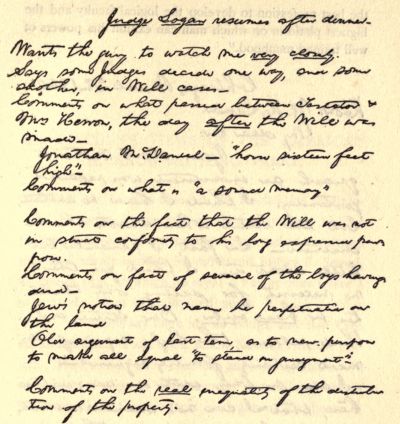 Judge Logan resumes after dinner.
Wants the jury to watch me very closely.
Says some Judges decide one way, and some
another, in Will cases—
Comments on what passed between Testator &
Mrs Herron, the day after the Will was
made—
Jonathan McDaniel— "horse sixteen feet
high"—
Comments on what is "a sound memory"
Comments on the fact that the Will was not
in strict conformity to his long expressed pur
pose.
Comments on fact of several of the boys having
died—
Jew's notion that name be perpetuated on
the land
Old argument of last term, as to new purpose
to make all equal "to stand in judgment".
Comments on the real inequality of the distribu
tion of the property.